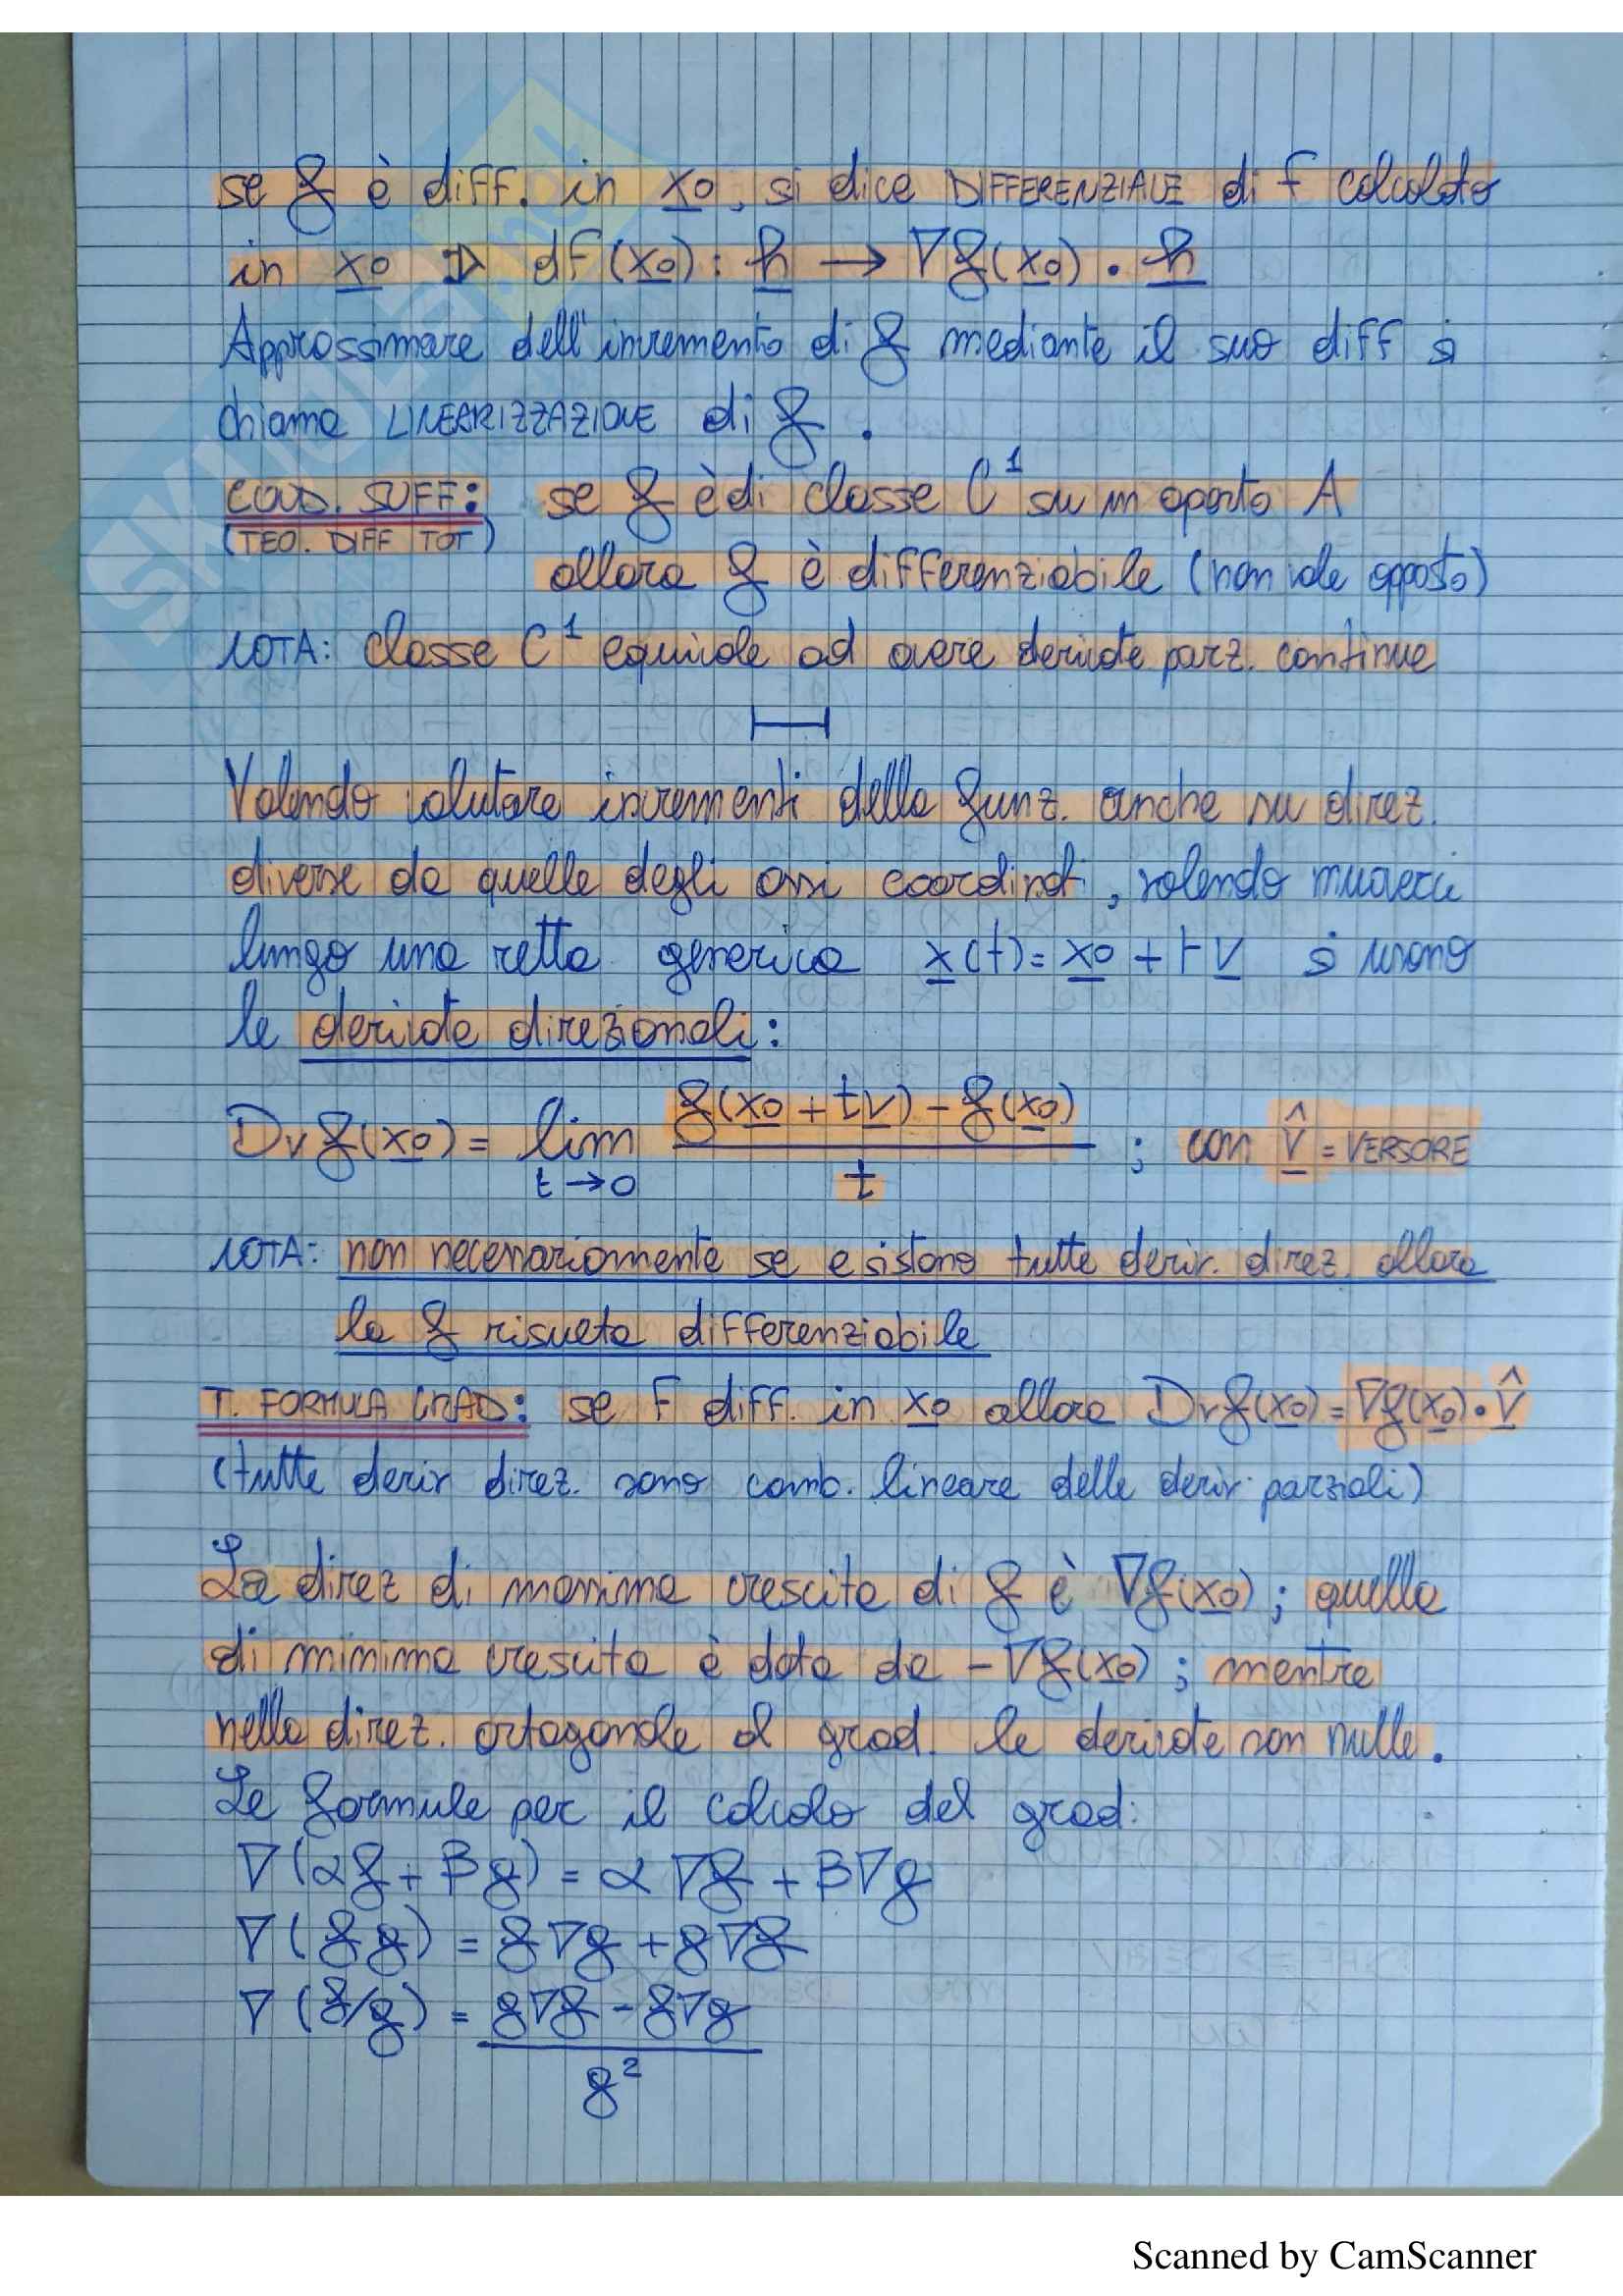 se f è diff. in x0, si dice DIFFERENZIALE di f calcolato
in x0 ⇒ df(x0): h → ∇f(x0) · h
Approssimare dell'incremento di f mediante il suo diff si
chiama LINEARIZZAZIONE di f.
COND. SUFF: se f è di classe C¹ su un aperto A
(TEO. DIFF TOT)
allora f è differenziabile (non vale opposto)
NOTA: classe C¹ equivale ad avere derivate parz. continue
Volendo valutare incrementi della funz. anche su direz.
diverse da quelle degli assi coordinati, volendo muoverci
lungo una retta generica x(t) = x0 + tv si usano
le derivate direzionali:
Dvf(x0) = lim t→0 f(x0 + tv) - f(x0) / t ; con v̂ = VERSORE
NOTA: non necessariamente se esistono tutte deriv. direz. allora
la f risulta differenziabile
T. FORMULA GRAD: se F diff. in x0 allora Dvf(x0) = ∇f(x0) · v̂
(tutte deriv direz. sono comb. lineare delle deriv. parziali)
La direz di massima crescita di f è ∇f(x0); quella
di minima crescita è data da -∇f(x0); mentre
nella direz. ortogonale al grad. le derivate son nulle.
Le formule per il calcolo del grad:
∇(αf + βg) = α∇f + β∇g
∇(fg) = f∇g + g∇f
∇(f/g) = g∇f - f∇g / g²
SKUOLA.net
Scanned by CamScanner